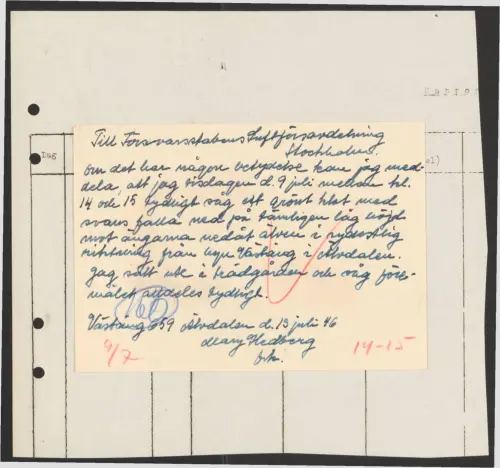 Till Försvarsstabens Luftförsvavdelning
Stockholm
Om det har någon betydelse kan jag med-
dela, att jag tisdagen d. 9 juli mellan kl.
14 och 15 tydligt såg ett grönt klot med
svans falla ned på tämligen låg höjd
mot ängarna nedåt älven i sydostlig
riktning från byn Västäng i Älvdalen.
Jag satt ute i trädgården och såg före-
målet alldeles tydligt.
Västäng 659 Älvdalen d. 13 juli 46
Mary Hedberg
9/7
14-15
Dag